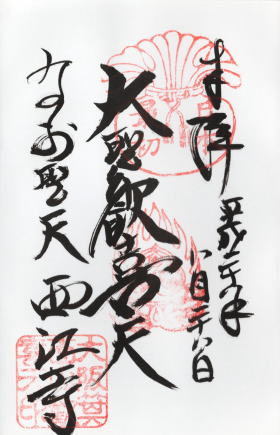 奉拝
平成二十年
八月二十八日
大聖歓喜天
みのお聖天 西江寺